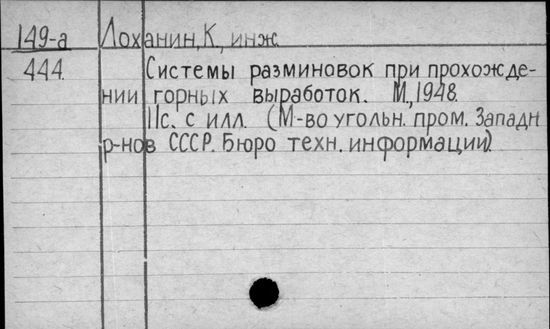 149-а Лоханин, К, инж.
444. Системы разминовок при прохожде-
нии горных выработок. М., 1948.
11с. с илл. (М-во угольн. пром. Западн
р-нов СССР. Бюро техн. информации).